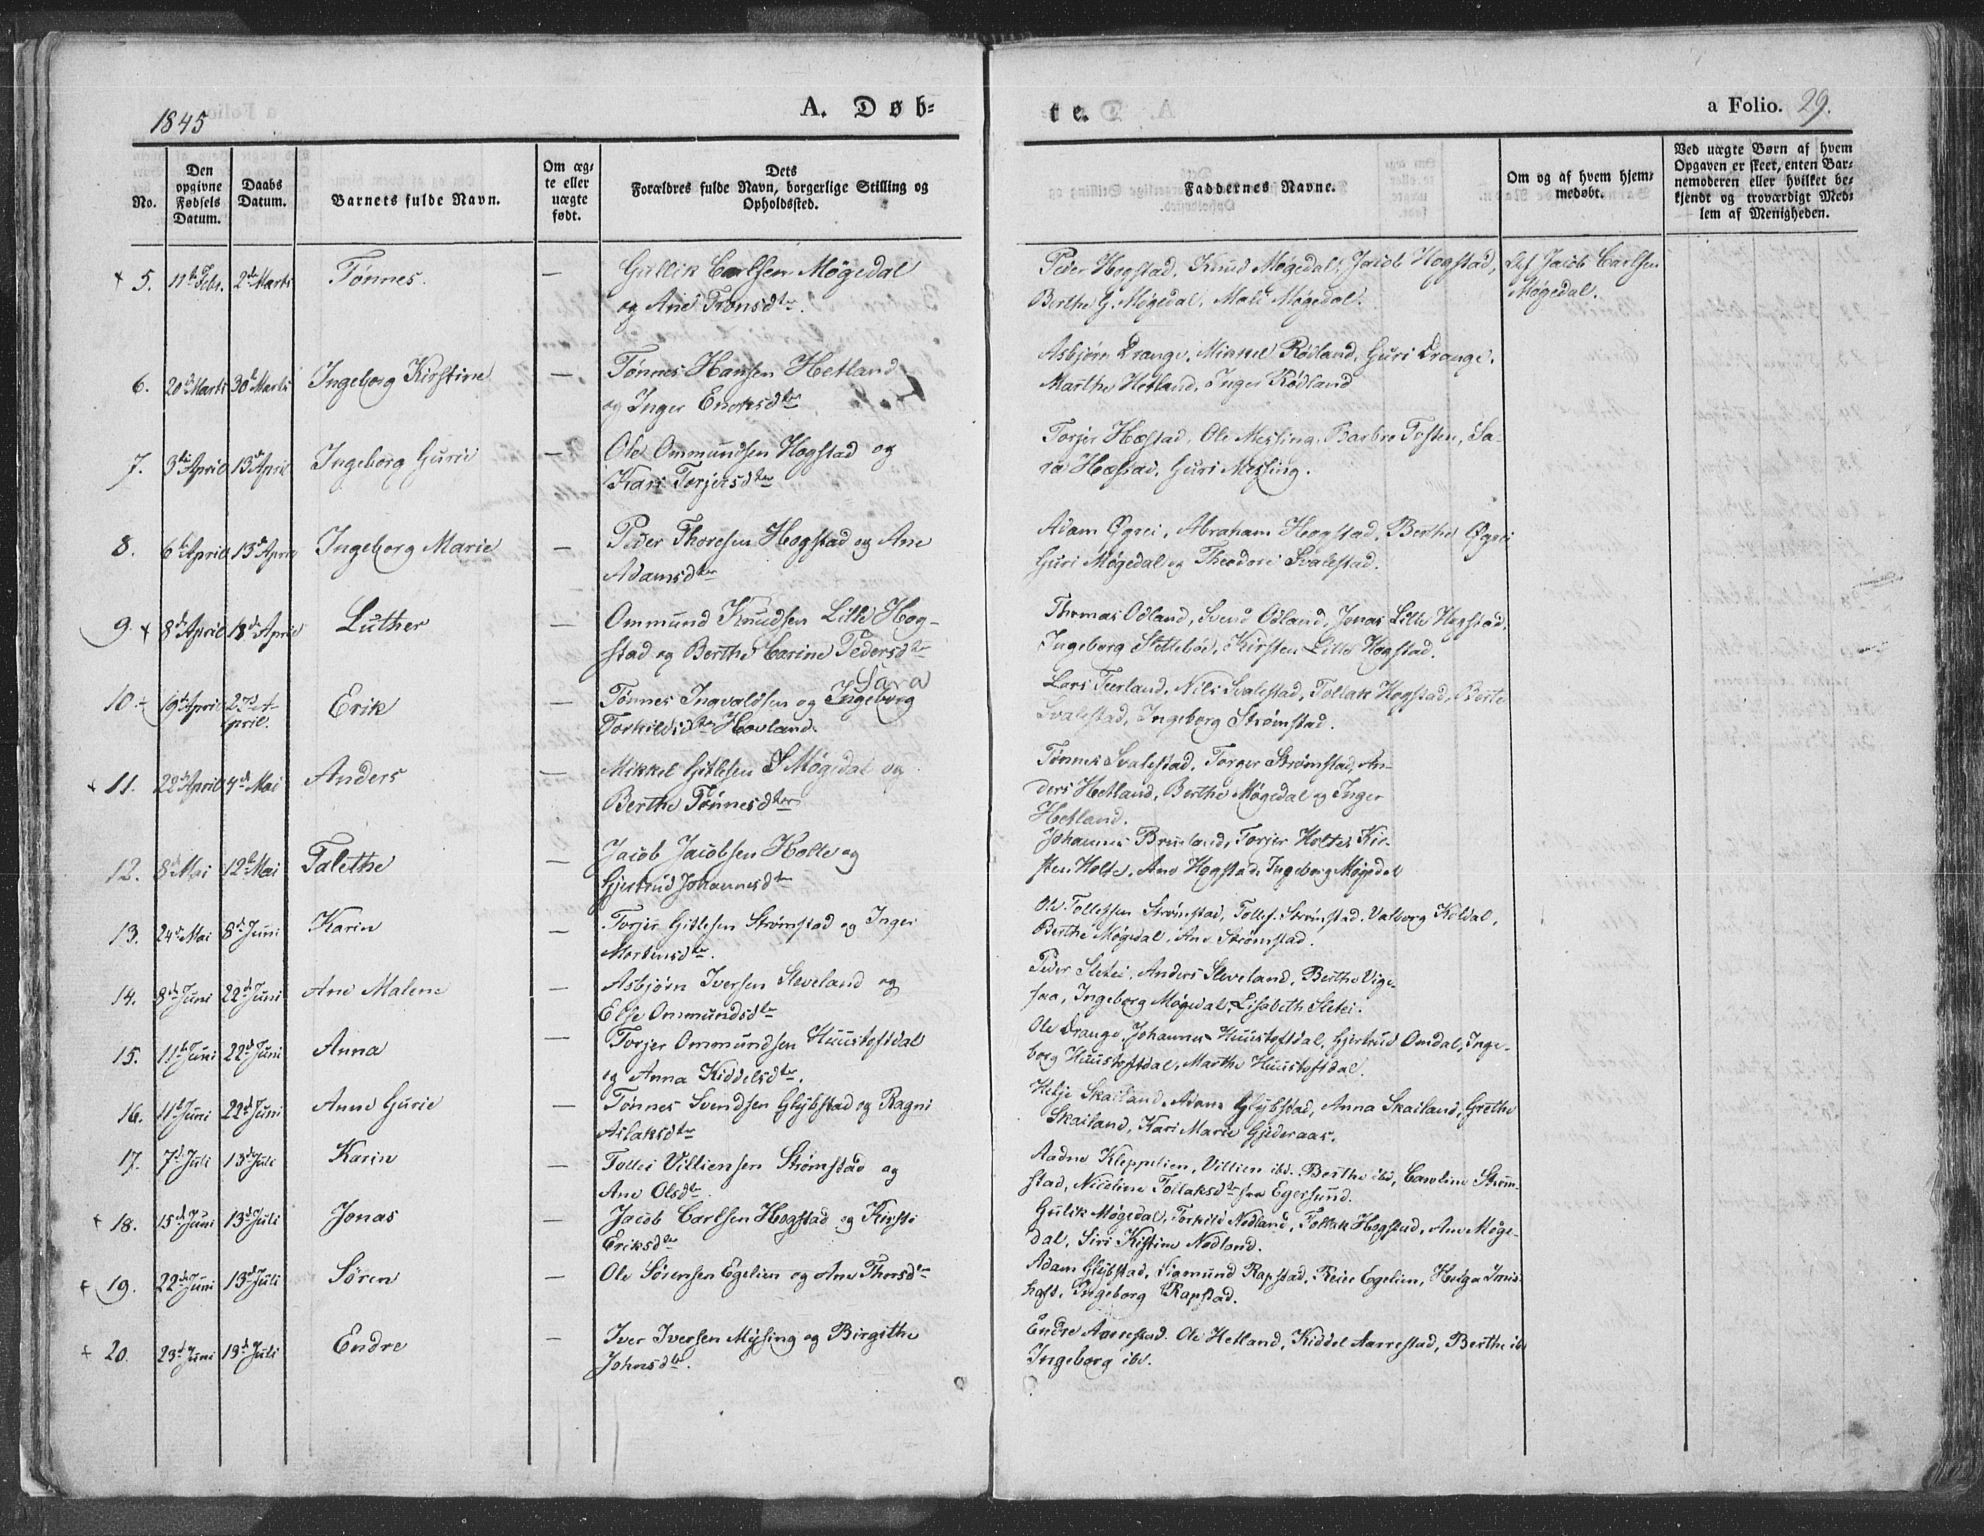 1845
A. Døb-
te.
a Folio. 29.
No.
Den opgivne Fødsels Datum.
Daabs Datum.
Barnets fulde Navn.
Om ægte eller uægte født.
Dets Forældres fulde Navn, borgerlige Stilling og Opholdssted.
Faddernes Navne.
Om og af hvem hjemmedøbt.
Ved uægte Børn af hvem Opgaven er skeet, enten Barnemoderen eller hvilket bekjendt og troværdigt Medlem af Menigheden.
5. 11te Febr. 2de Marts Tønnes. — Gullik Carlsen Møgedal
og Ane Tronsdtr.
Peder Hogstad, Knud Møgedal, Jacob Hogstad,
Berthe G. Møgedal, Mali Møgedal.
Jacob Carlsen
Møgedal.
6. 20de Marts 30te Marts Ingeborg Kirstine — Tønnes Hansen Hetland
og Inger Enoksdtr
Asbjørn Drange, Mikkel Rødland, Guri Drange,
Marthe Hetland, Inger Rødland
7. 3die April 13de April Ingeborg Gurie — Ole Ommundsen Hogstad og
Kari Torjersdtr
Torjer Hæstad, Ole Messing, Barbro Tosten, Sa-
ra Hæstad, Guri Messing.
8. 6te April 13de April Ingeborg Marie — Peder Thoresen Hogstad og Ane
Adamsdtr
Adam Øgrei, Abraham Hogstad, Berthe Øgrei
Guri Møgedal og Theodore Svalestad.
9. 8de April 18de April Luther — Ommund Knudsen Lille Hog-
stad og Berthe Carine Pedersdtr
Thomas Odland, Svend Odland, Jonas Lille Hogstad,
Ingeborg Slettebød, Kirsten Lille Hogstad.
10. 19de April 27de April. Erik — Sara
Tønnes Ingvaldsen og Ingeborg
Torkildsdtr Hovland.
Lars Teerland, Nils Svalestad, Tollak Hogstad, Berte
Svalestad, Ingeborg Strømstad.
11. 22de April 4de Mai Anders — Mikkel Gitlesen Møgedal og
Berthe Tønnesdtr
Tønnes Svalestad, Torger Strømstad, An-
ders Hetland, Berthe Møgedal og Inger
Hetland.
12. 8de Mai 12te Mai Talethe — Jacob Jacobsen Holte og
Gjertrud Johannesdtr
Johannes Bruland, Torjer Holte, Kir-
sten Holte, Ane Hogstad, Ingeborg Møgedal
13. 24de Mai 8de Juni Karin — Torjer Gitlesen Strømstad og Inger
Mortensdtr.
Ole Tollefsen Strømstad, Tollef Strømstad, Valborg Koldal,
Berthe Møgedal, Ane Strømstad.
14. 8de Juni 22de Juni Ane Malene — Asbjørn Iversen Sleveland og
Else Ommundsdtr
Peder Sletei, Anders Sleveland, Berthe Vige-
saa, Ingeborg Møgedal, Lisabeth Sletei.
15. 11te Juni 22de Juni Anna — Torjer Ommundsen Huustoftdal
og Anna Kiddelsdtr.
Ole Drange, Johannes Huustoftdal, Gjertrud Omdal, Inge-
borg Huustoftdal, Marthe Huustoftdal.
16. 11te Juni 22de Juni Anne Gurie — Tønnes Svendsen Glybstad og Ragni
Aslaksdtr
Helje Skailand, Adam Glybstad, Anna Skailand, Grethe
Skailand, Kari Marie Gyderaas.
17. 7de Juli 13de Juli Karin — Tollei Villiensen Strømstad og
Ane Olsdtr
Aadne Kleppelien, Villien ibd. Berthe ibd, Caroline Strøm-
stad, Nicoline Tollaksdtr fra Egersund.
18. 15de Juni 13de Juli Jonas — Jacob Carlsen Hogstad og Kirsti
Eriksdtr
Gulik Møgedal, Torkild Nodland, Tollak Hogstad, Ane Møge-
dal, Siri Kistine Nodland.
19. 22de Juni 13de Juli Sören — Ole Sørensen Egelien og Ane Thorsdtr
Adam Glybstad, Sigmund Rapstad, Reier Egelien, Helga
Ingeborg Rapstad.
20. 23de Juni 13de Juli Endre — Iver Iversen Mysing og Birgithe
Johnsdtr.
Endre Aarrestad. Ole Hetland, Kiddel Aarrestad, Berthe ibd
Ingeborg ibd.